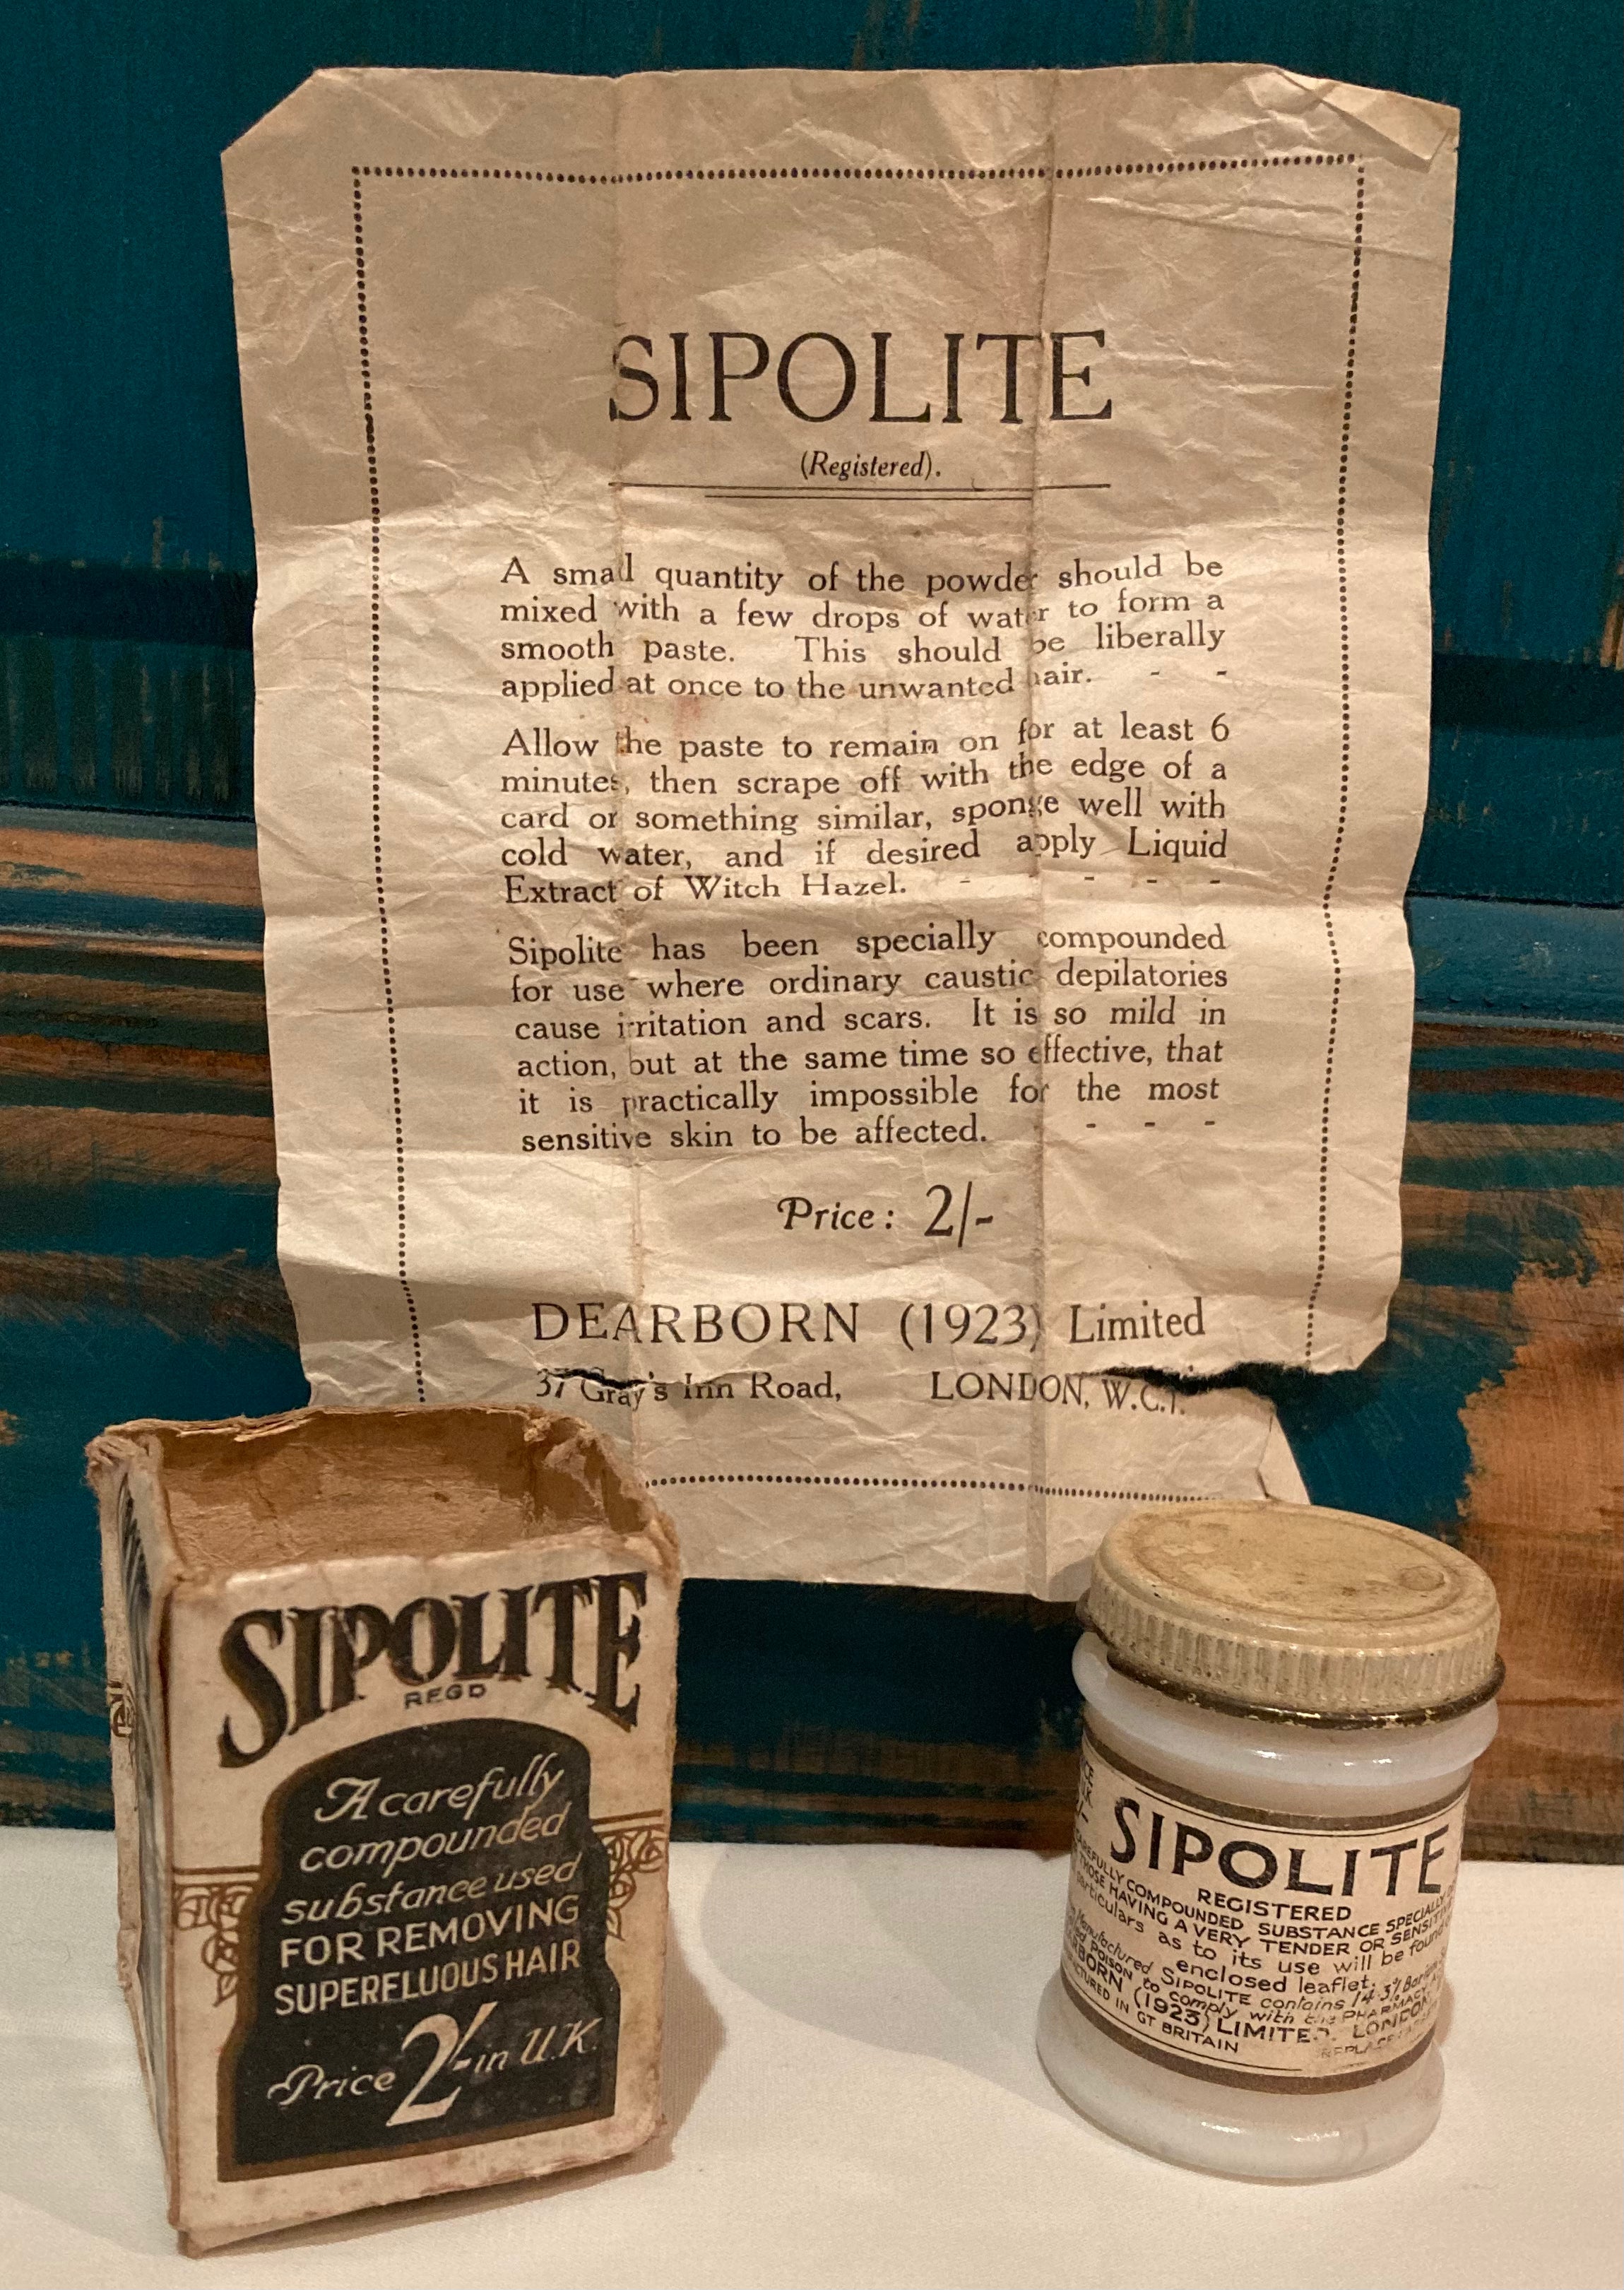 SIPOLITE
(Registered).
A small quantity of the powder should be
mixed with a few drops of water to form a
smooth paste. This should be liberally
applied at once to the unwanted hair. - -
Allow the paste to remain on for at least 6
minutes, then scrape off with the edge of a
card or something similar, sponge well with
cold water, and if desired apply Liquid
Extract of Witch Hazel. - - - -
Sipolite has been specially compounded
for use where ordinary caustic depilatories
cause irritation and scars. It is so mild in
action, but at the same time so effective, that
it is practically impossible for the most
sensitive skin to be affected. - - -
Price: 2/-
DEARBORN (1923) Limited
37 Gray's Inn Road, LONDON, W.C.1.
SIPOLITE
REGD
A carefully
compounded
substance used
FOR REMOVING
SUPERFLUOUS HAIR
Price 2/- in U.K.
SIPOLITE
REGISTERED
CAREFULLY COMPOUNDED SUBSTANCE SPECIALLY
THOSE HAVING A VERY TENDER OR
particulars as to its use will be found
enclosed leaflet.
Manufactured SIPOLITE contains 14.3%
POISON to comply with the PHARMACY
(1923) LIMITED. LONDON
IN GT BRITAIN